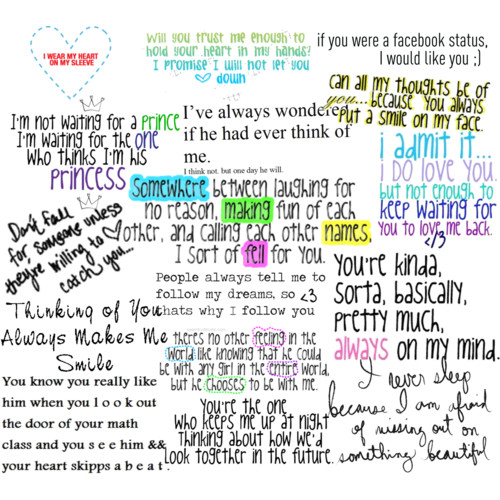 I WEAR MY HEART
ON MY SLEEVE
Will you trust me enough to
hold your heart in my hands?
I promise I will not let you
down
if you were a facebook status,
I would like you ;)
can all my thoughts be of
you...because you always
put a smile on my face.
I'm not waiting for a prince
I'm waiting for the one
who thinks I'm his
princess
I've always wondered
if he had ever think of
me.
I think not. but one day he will.
i admit it...
i do love you.
but not enough to
keep waiting for
you to love me back.
</3
Somewhere between laughing for
no reason, making fun of each
other, and calling each other names,
I sort of fell for you.
Don't fall
for someone unless
they're willing to
catch you...
People always tell me to
follow my dreams, so <3
thats why I follow you
You're kinda,
sorta, basically,
pretty much,
always on my mind.
Thinking of You
Always Makes Me
Smile
theres no other feeling in the
world like knowing that he could
be with any girl in the entire world,
but he chooses to be with me.
You know you really like
him when you l o o k out
the door of your math
class and you s e e him &&
your heart skipps a b e a t .
You're the one
who keeps me up at night
thinking about how we'd
look together in the future.
I never sleep
because I am afraid
of missing out on
something beautiful